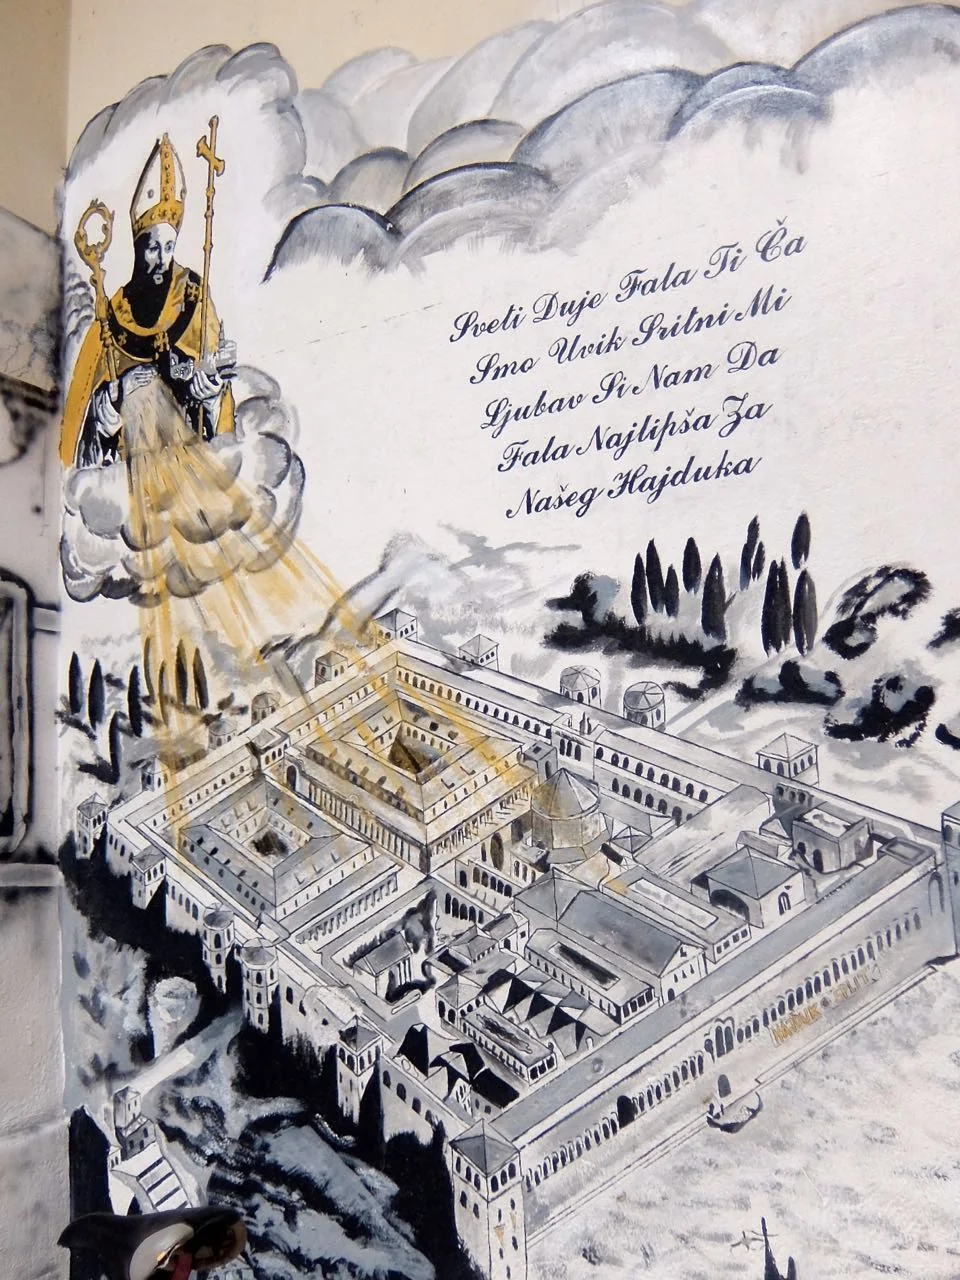 Sveti Duje Fala Ti Ča
Smo Uvik Sritni Mi
Ljubav Si Nam Da
Fala Najlipša Za
Našeg Hajduka